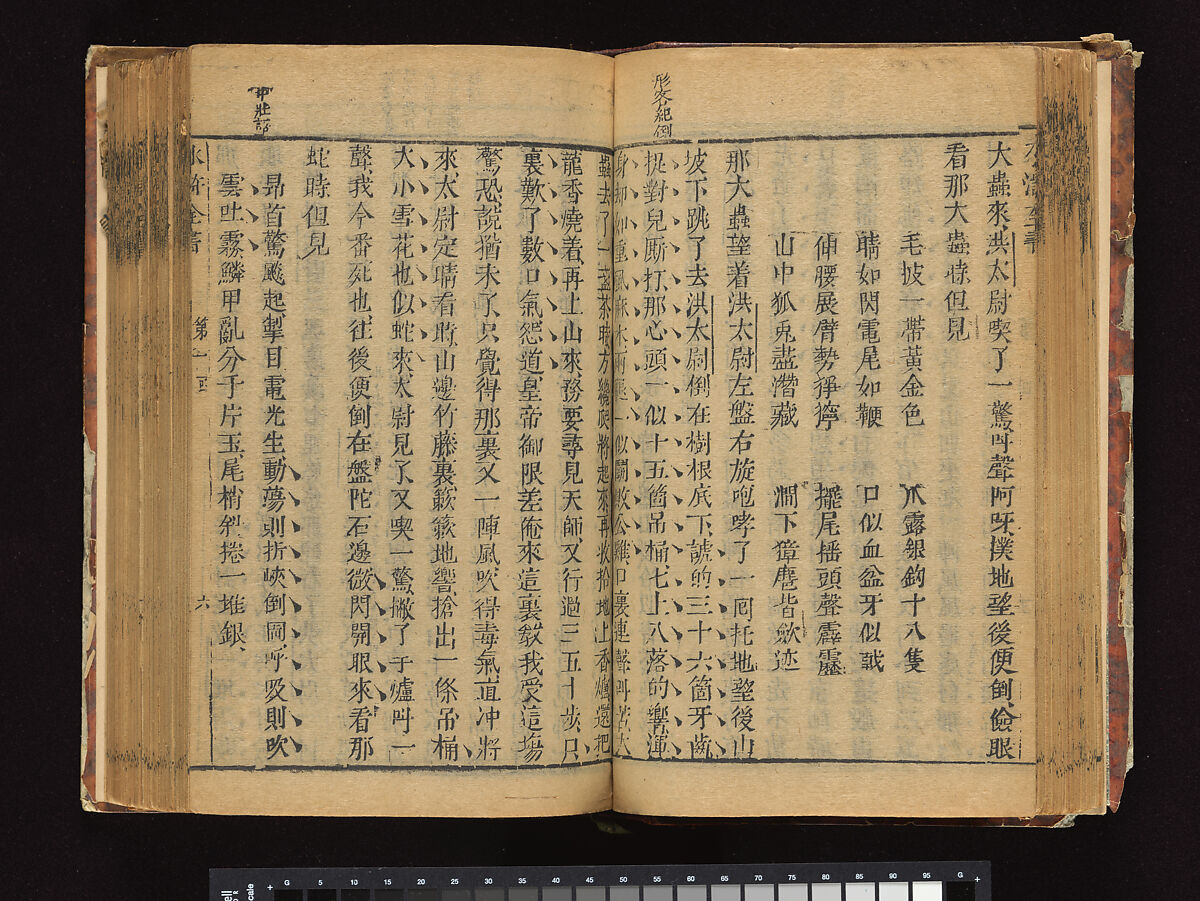 大蟲來洪太尉喫了一驚叫聲阿呀撲地望後便倒偷眼
看那大蟲時但見
毛披一帶黃金色　爪露銀鈎十八隻
睛如閃電尾如鞭　口似血盆牙似戟
伸腰展臂勢猙獰　擺尾搖頭聲霹靂
山中狐兎盡潛藏　澗下獐麅皆歛迹
那大蟲望着洪太尉左盤右旋咆哮了一囘托地望後山
坡下跳了去洪太尉倒在樹根底下諕的三十六箇牙齒
捉對兒厮打那心頭一似十五箇吊桶七上八落的響渾
身却如重風麻木兩腿一似鬭敗公雞口裏連聲叫苦大
蟲去了一盞茶時方纔爬將起來再收拾地上香爐還把
龍香燒着再上山來務要尋見天師又行過三五十步口
裏歎了數口氣怨道皇帝御限差俺來這裏教我受這塲
驚恐說猶未了只覺得那裏又一陣風吹得毒氣直冲將
來太尉定睛看時山邊竹藤裏簌簌地響搶出一條吊桶
大小雪花也似蛇來太尉見了又喫一驚撇了手爐叫一
聲我今番死也往後便倒在盤陀石邊微閃開眼來看那
蛇時但見
昻首驚飈起掣目電光生動蕩則折峽倒岡呼吸則吹
雲吐霧鱗甲亂分千片玉尾梢斜捲一堆銀
水滸全書
第一囘
六